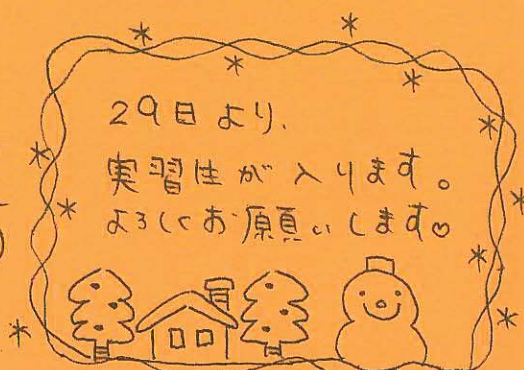 29日より、
実習生が入ります。
よろしくお願いします♡